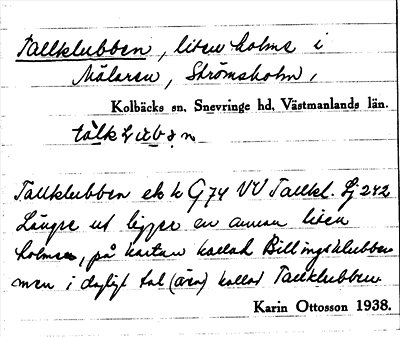 Tallklubben, liten holme i
Mälaren, Strömsholm,
Kolbäcks sn, Snevringe hd, Västmanlands län.
Tallklubben ek k G74 VV Tallkl. Lj 242
Längre ut ligger en annan liten
holme, på kartan kallad Billingsklubben
men i dagligt tal (även) kallad Tallklubben
Karin Ottosson 1938.